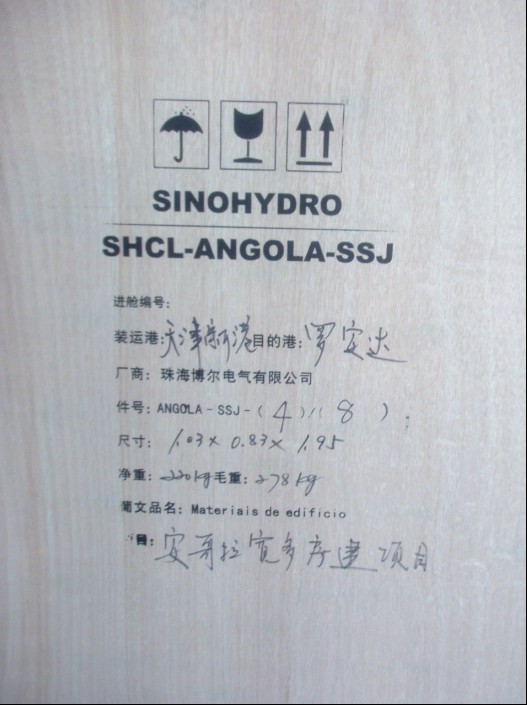 SINOHYDRO
SHCL-ANGOLA-SSJ
进舱编号:
装运港:天津新港目的港:罗安达
厂商: 珠海博尔电气有限公司
件号: ANGOLA-SSJ-(4)/(8);
尺寸: 1.03× 0.83× 1.95
净重: 220kg毛重: 278kg
葡文品名: Materiais de edificio
目: 安哥拉宽多 建项目